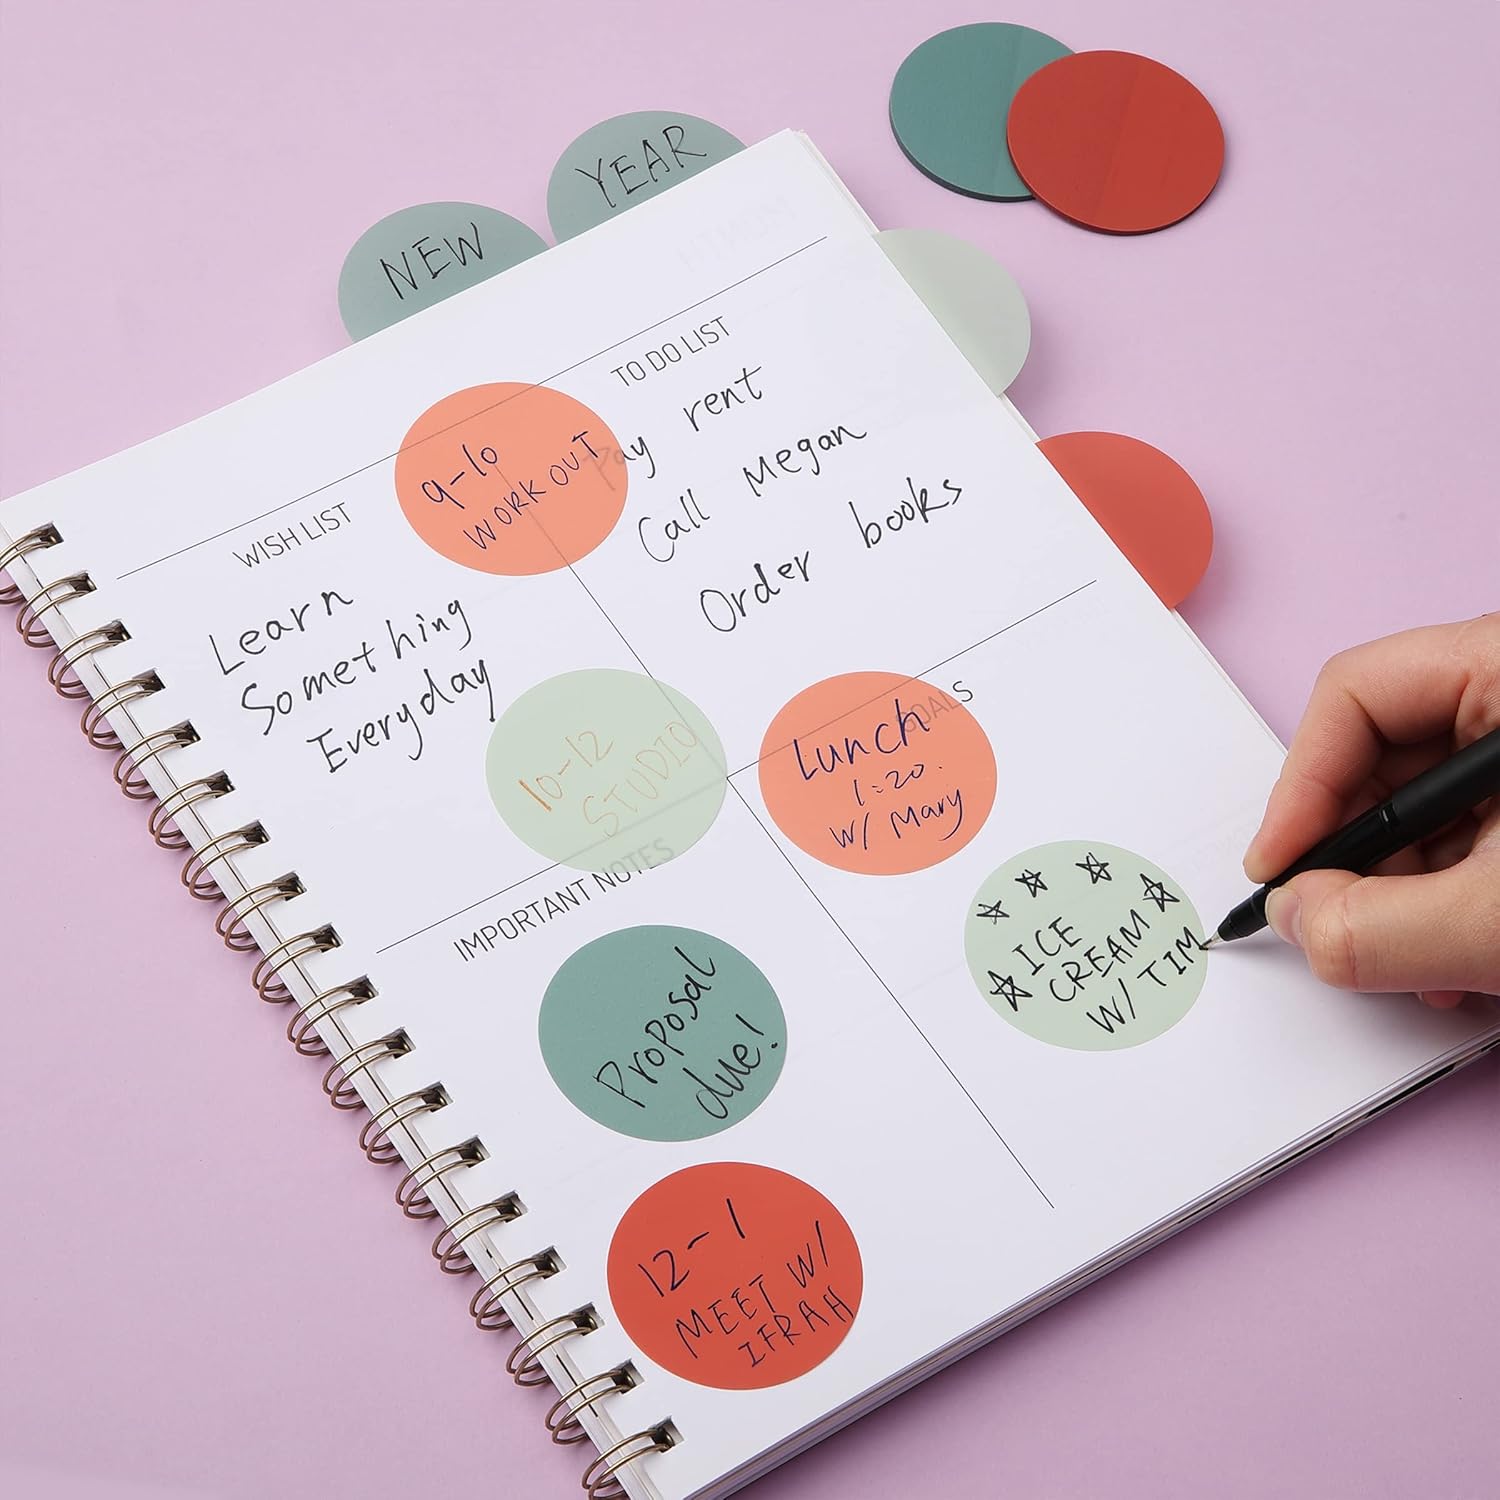 NEW
YEAR
TO DO LIST
Pay rent
Call Megan
Order books
9-10
WORK OUT
WISH LIST
Learn
Something
Everyday
10-12
STUDIO
GOALS
Lunch
1:20.
W/ Mary
ICE
CREAM
W/ TIM
IMPORTANT NOTES
Proposal
due!
12-1
MEET W/
IFRAH